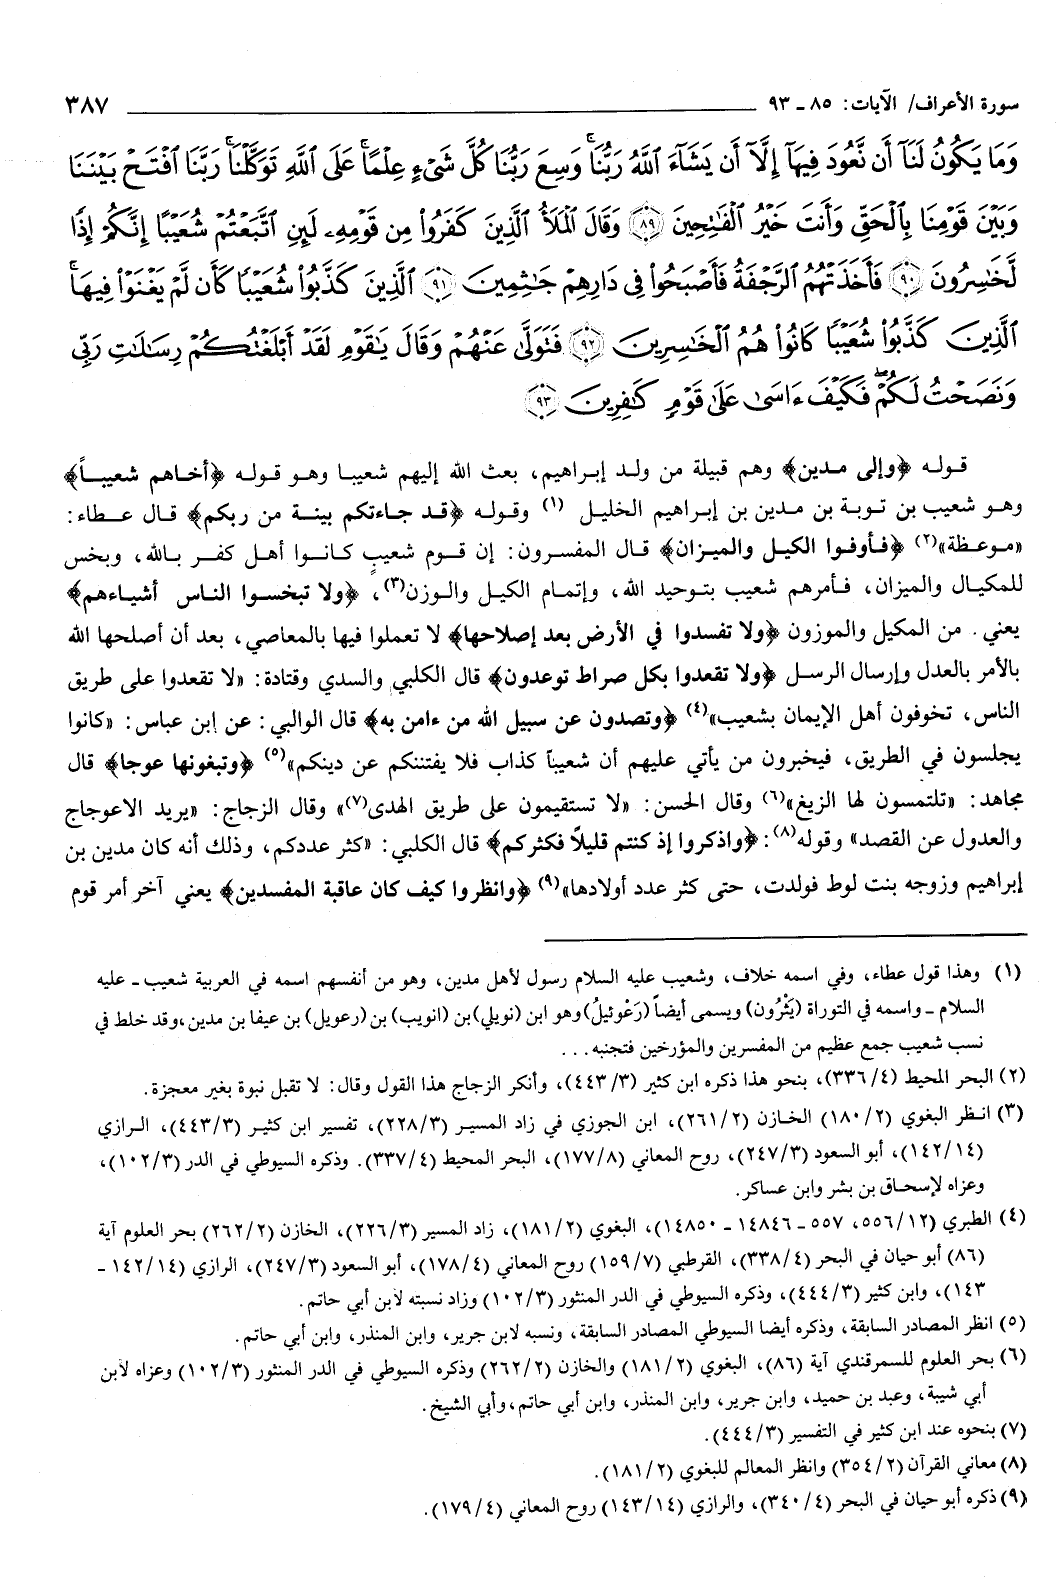 سورة الأعراف/ الآيات: ٨٥ ـ ٩٣ ٣٨٧
وَمَا يَكُونُ لَنَآ أَن نَّعُودَ فِيهَآ إِلَّآ أَن يَشَآءَ ٱللَّهُ رَبُّنَا ۚ وَسِعَ رَبُّنَا كُلَّ شَىْءٍ عِلْمًا ۚ عَلَى ٱللَّهِ تَوَكَّلْنَا ۚ رَبَّنَا ٱفْتَحْ بَيْنَنَا
وَبَيْنَ قَوْمِنَا بِٱلْحَقِّ وَأَنتَ خَيْرُ ٱلْفَٰتِحِينَ ﴿٨٩﴾ وَقَالَ ٱلْمَلَأُ ٱلَّذِينَ كَفَرُوا۟ مِن قَوْمِهِۦ لَئِنِ ٱتَّبَعْتُمْ شُعَيْبًا إِنَّكُمْ إِذًا
لَّخَٰسِرُونَ ﴿٩٠﴾ فَأَخَذَتْهُمُ ٱلرَّجْفَةُ فَأَصْبَحُوا۟ فِى دَارِهِمْ جَٰثِمِينَ ﴿٩١﴾ ٱلَّذِينَ كَذَّبُوا۟ شُعَيْبًا كَأَن لَّمْ يَغْنَوْا۟ فِيهَا ۚ
ٱلَّذِينَ كَذَّبُوا۟ شُعَيْبًا كَانُوا۟ هُمُ ٱلْخَٰسِرِينَ ﴿٩٢﴾ فَتَوَلَّىٰ عَنْهُمْ وَقَالَ يَٰقَوْمِ لَقَدْ أَبْلَغْتُكُمْ رِسَٰلَٰتِ رَبِّى
وَنَصَحْتُ لَكُمْ ۖ فَكَيْفَ ءَاسَىٰ عَلَىٰ قَوْمٍ كَٰفِرِينَ ﴿٩٣﴾
قوله ﴿وإلى مدين﴾ وهم قبيلة من ولد إبراهيم، بعث الله إليهم شعيبا وهو قوله ﴿أخاهم شعيباً﴾
وهو شعيب بن توبة بن مدين بن إبراهيم الخليل (١) وقوله ﴿قد جاءتكم بينة من ربكم﴾ قال عطاء:
«موعظة»(٢) ﴿فأوفوا الكيل والميزان﴾ قال المفسرون: إن قوم شعيبٍ كانوا أهل كفر بالله، وبخس
للمكيال والميزان، فأمرهم شعيب بتوحيد الله، وإتمام الكيل والوزن(٣)، ﴿ولا تبخسوا الناس أشياءهم﴾
يعني. من المكيل والموزون ﴿ولا تفسدوا في الأرض بعد إصلاحها﴾ لا تعملوا فيها بالمعاصي، بعد أن أصلحها الله
بالأمر بالعدل وإرسال الرسل ﴿ولا تقعدوا بكل صراط توعدون﴾ قال الكلبي والسدي وقتادة: «لا تقعدوا على طريق
الناس، تخوفون أهل الإيمان بشعيب»(٤) ﴿وتصدون عن سبيل الله من ءامن به﴾ قال الوالبي: عن إبن عباس: «كانوا
يجلسون في الطريق، فيخبرون من يأتي عليهم أن شعيباً كذاب فلا يفتننكم عن دينكم»(٥) ﴿وتبغونها عوجا﴾ قال
مجاهد: «تلتمسون لها الزيغ»(٦) وقال الحسن: «لا تستقيمون على طريق الهدى(٧)» وقال الزجاج: «يريد الاعوجاج
والعدول عن القصد» وقوله(٨): ﴿واذكروا إذ كنتم قليلاً فكثركم﴾ قال الكلبي: «كثر عددكم، وذلك أنه كان مدين بن
إبراهيم وزوجه بنت لوط فولدت، حتى كثر عدد أولادها»(٩) ﴿وانظروا كيف كان عاقبة المفسدين﴾ يعني آخر أمر قوم
(١) وهذا قول عطاء، وفي اسمه خلاف، وشعيب عليه السلام رسول لأهل مدين، وهو من أنفسهم اسمه في العربية شعيب ـ عليه
السلام ـ واسمه في التوراة (يَثْرُون) ويسمى أيضاً (رَعْوئيلُ) وهو ابن (نويلي) بن (انويب) بن (رعويل) بن عيفا بن مدين، وقد خلط في
نسب شعيب جمع عظيم من المفسرين والمؤرخين فتجنبه...
(٢) البحر المحيط (٤/ ٣٣٦)، بنحو هذا ذكره ابن كثير (٣/ ٤٤٣)، وأنكر الزجاج هذا القول وقال: لا تقبل نبوة بغير معجزة.
(٣) انظر البغوي (٢/ ١٨٠) الخازن (٢/ ٢٦١)، ابن الجوزي في زاد المسير (٣/ ٢٢٨)، تفسير ابن كثير (٣/ ٤٤٣)، الرازي
(١٤/ ١٤٢)، أبو السعود (٣/ ٢٤٧)، روح المعاني (٨/ ١٧٧)، البحر المحيط (٤/ ٣٣٧). وذكره السيوطي في الدر (٣/ ١٠٢)،
وعزاه لإسحاق بن بشر وابن عساكر.
(٤) الطبري (١٢/ ٥٥٦، ٥٥٧ ـ ١٤٨٤٦ ـ ١٤٨٥٠)، البغوي (٢/ ١٨١)، زاد المسير (٣/ ٢٢٦)، الخازن (٢/ ٢٦٢) بحر العلوم آية
(٨٦) أبو حيان في البحر (٤/ ٣٣٨)، القرطبي (٧/ ١٥٩) روح المعاني (٤/ ١٧٨)، أبو السعود (٣/ ٢٤٧)، الرازي (١٤/ ١٤٢ ـ
١٤٣)، وابن كثير (٣/ ٤٤٤)، وذكره السيوطي في الدر المنثور (٣/ ١٠٢) وزاد نسبته لابن أبي حاتم.
(٥) انظر المصادر السابقة، وذكره أيضا السيوطي المصادر السابقة، ونسبه لابن جرير، وابن المنذر، وابن أبي حاتم.
(٦) بحر العلوم للسمرقندي آية (٨٦)، البغوي (٢/ ١٨١) والخازن (٢/ ٢٦٢) وذكره السيوطي في الدر المنثور (٣/ ١٠٢) وعزاه لابن
أبي شيبة، وعبد بن حميد، وابن جرير، وابن المنذر، وابن أبي حاتم، وأبي الشيخ.
(٧) بنحوه عند ابن كثير في التفسير (٣/ ٤٤٤).
(٨) معاني القرآن (٢/ ٣٥٤) وانظر المعالم للبغوي (٢/ ١٨١).
(٩) ذكره أبو حيان في البحر (٤/ ٣٤٠)، والرازي (١٤/ ١٤٣) روح المعاني (٤/ ١٧٩).